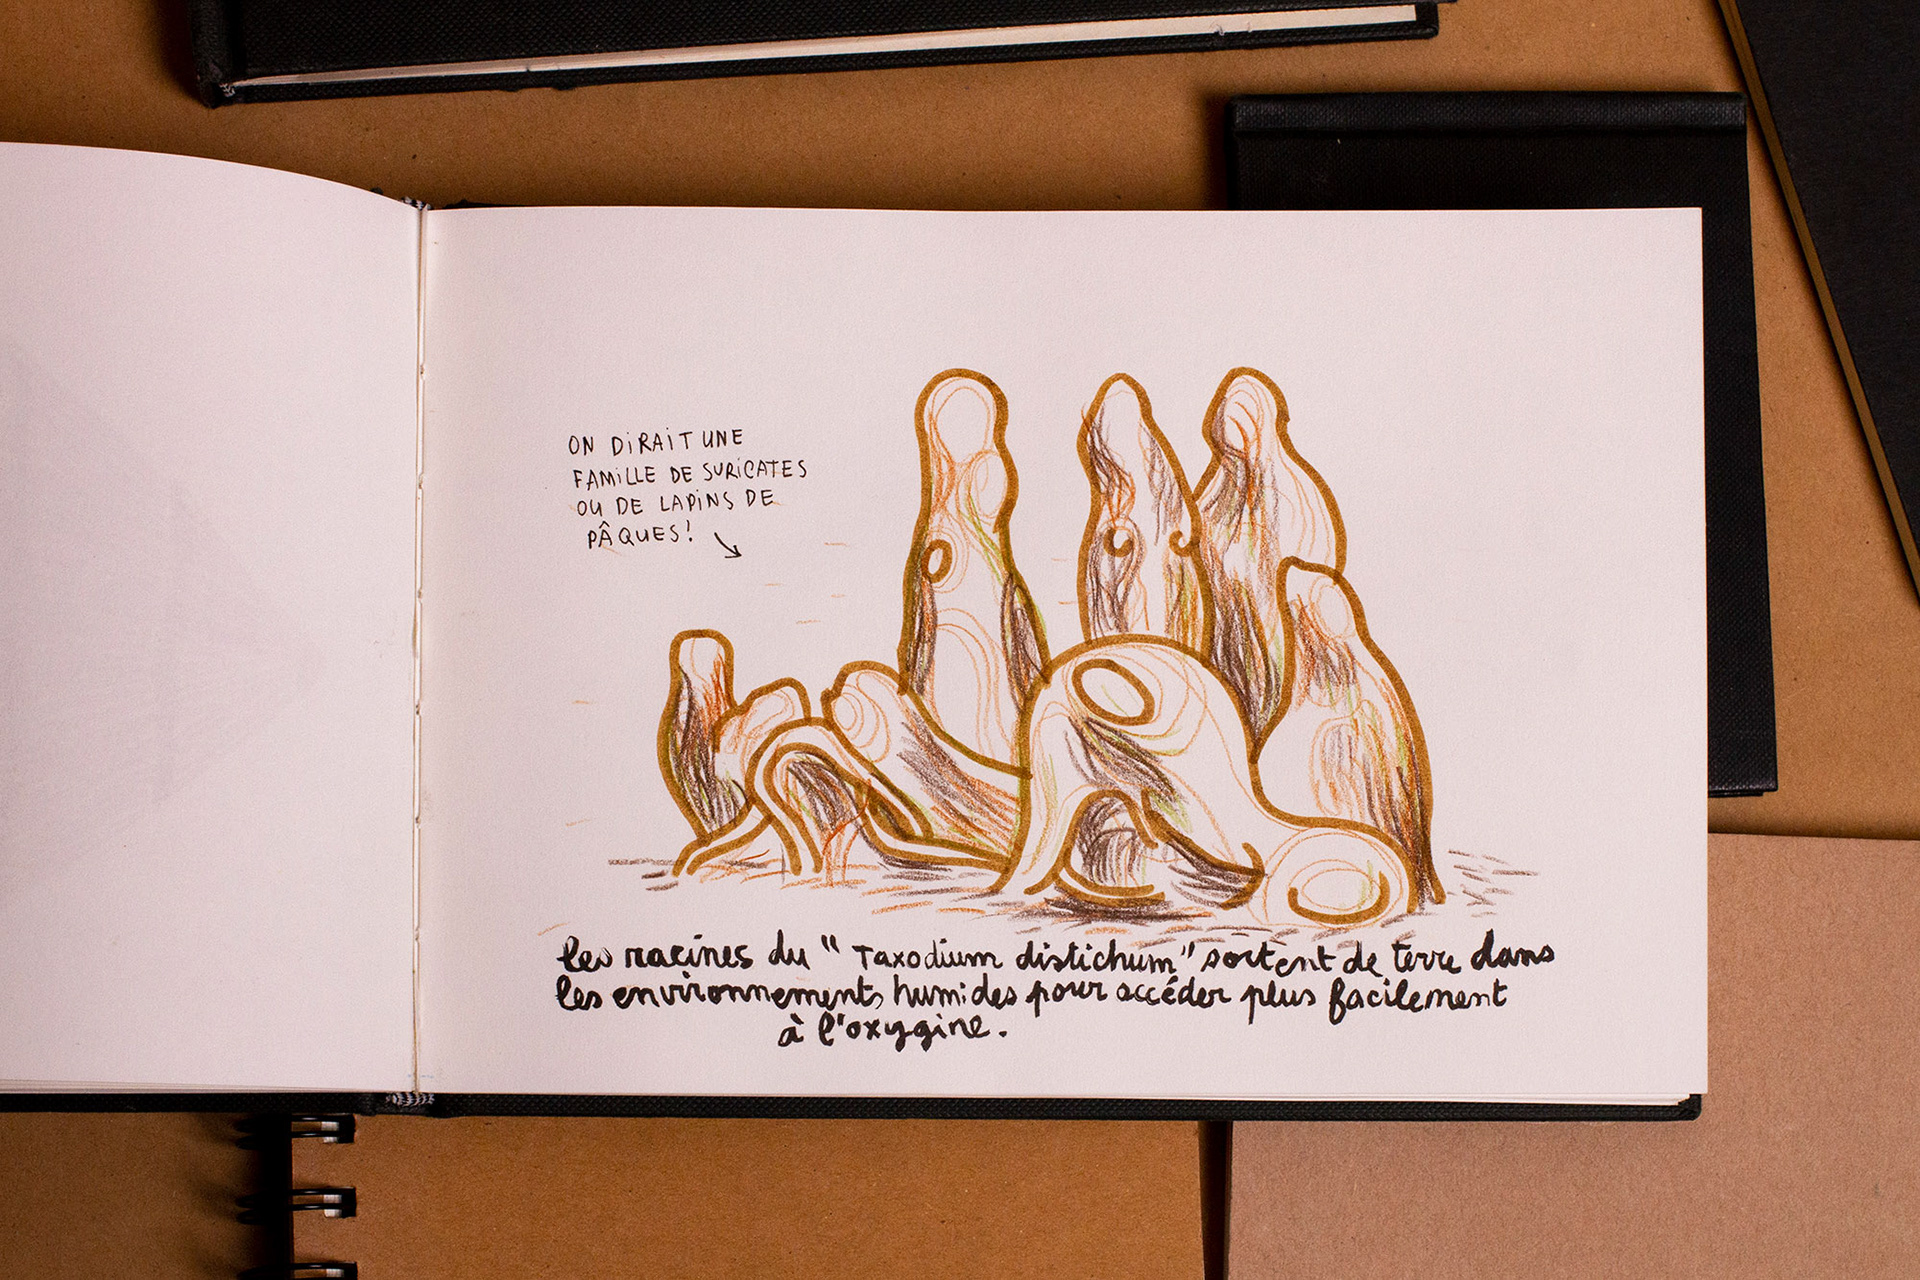 ON DIRAIT UNE
FAMILLE DE SURICATES
OU DE LAPINS DE
PÂQUES!
les racines du "Taxodium distichum" sortent de terre dans
les environnements humides pour accéder plus facilement
à l'oxygine.